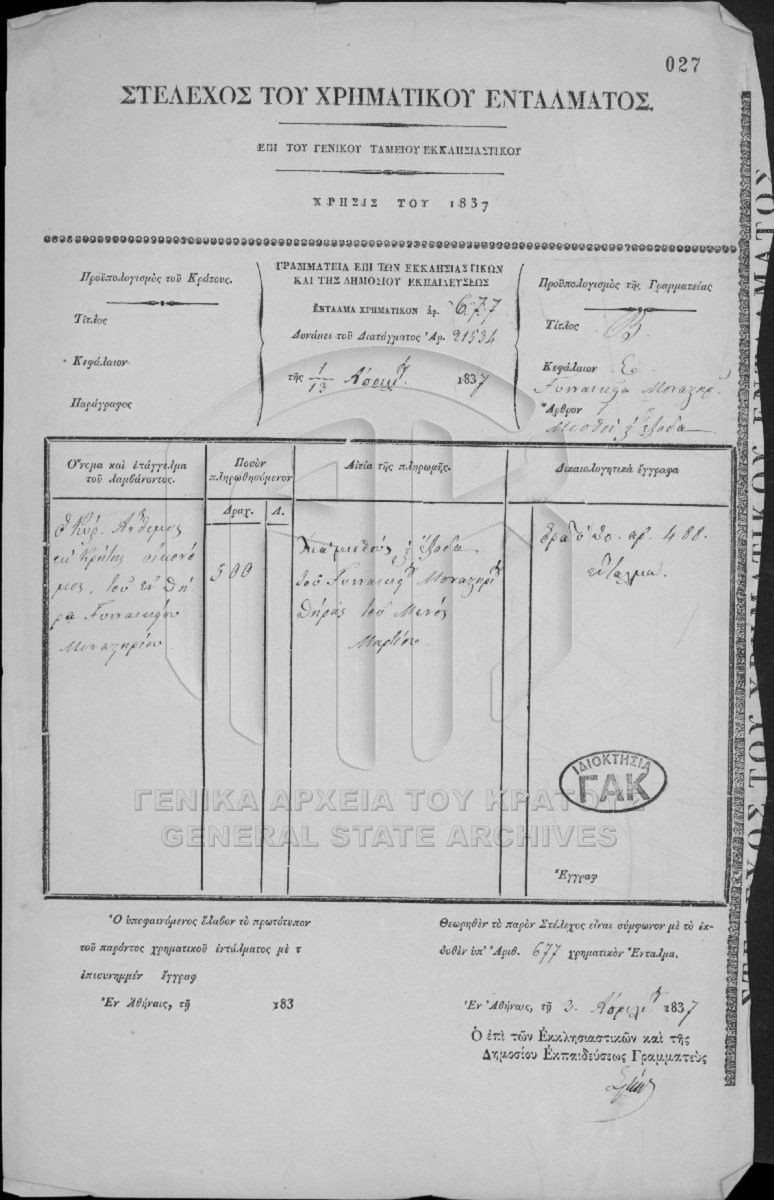 027
ΣΤΕΛΕΧΟΣ ΤΟΥ ΧΡΗΜΑΤΙΚΟΥ ΕΝΤΑΛΜΑΤΟΣ.
ΕΠΙ ΤΟΥ ΓΕΝΙΚΟΥ ΤΑΜΕΙΟΥ ΕΚΚΛΗΣΙΑΣΤΙΚΟΥ
ΧΡΗΣΙΣ ΤΟΥ 1837
Προϋπολογισμὸς τοῦ Κράτους.
Τίτλος
Κεφάλαιον
Παράγραφος
ΓΡΑΜΜΑΤΕΙΑ ΕΠΙ ΤΩΝ ΕΚΚΛΗΣΙΑΣΤΙΚΩΝ
ΚΑΙ ΤΗΣ ΔΗΜΟΣΙΟΥ ΕΚΠΑΙΔΕΥΣΕΩΣ
ΕΝΤΑΛΜΑ ΧΡΗΜΑΤΙΚΟΝ ἀρ. 677.
Δυνάμει τοῦ Διατάγματος Ἀρ. 21534
τῆς 1/13 Ἀπριλ 1837
Προϋπολογισμὸς τῆς Γραμματείας
Τίτλος Β.
Κεφάλαιον Ε.
Γυναικεῖα Μοναστηρ.
Ἄρθρον 1
Μισθοὶ ἔξοδα
Ὄνομα καὶ ἐπάγγελμα
τοῦ λαμβάνοντος.
Ποσὸν
πληρωθησόμενον
Δραχ. Λ.
Αἰτία τῆς πληρωμῆς.
Δικαιολογητικὰ ἔγγραφα
Ὁ Κύρ. Ἄνθιμος
ἐκ Κρήτης οἰκονό
μος, τοῦ ἐν Θή
ρᾳ Γυναικείου
Μοναστηρίου.
500
Διὰ μισθοὺς ἔξοδα
τοῦ Γυναικ Μοναστηρί
Θήρας τοῦ Μηνὸς
Μαρτίου
ἀρ. 488.
ἔνταλμα.
ΙΔΙΟΚΤΗΣΙΑ
ΓΑΚ
ΓΕΝΙΚΑ ΑΡΧΕΙΑ ΤΟΥ ΚΡΑΤΟΥΣ
GENERAL STATE ARCHIVES
Ἐγγραφ
Ὁ ὑποφαινόμενος ἔλαβον τὸ πρωτότυπον
τοῦ παρόντος χρηματικοῦ ἐντάλματος μὲ τ
ἐπισυνημμέν ἔγγραφ
Ἐν Ἀθήναις, τῇ 183
Θεωρηθὲν τὸ παρὸν Στέλεχος εἶναι σύμφωνον μὲ τὸ ἐκ-
δοθὲν ὑπ' Ἀριθ. 677 χρηματικὸν Ἔνταλμα.
Ἐν Ἀθήναις, τῇ 3. Ἀπριλ 1837
Ὁ ἐπὶ τῶν Ἐκκλησιαστικῶν καὶ τῆς
Δημοσίου Ἐκπαιδεύσεως Γραμματεὺς
ΣΤΕΛΕΧΟΣ ΤΟΥ ΧΡΗΜΑΤΙΚΟΥ ΕΝΤΑΛΜΑΤΟΣ